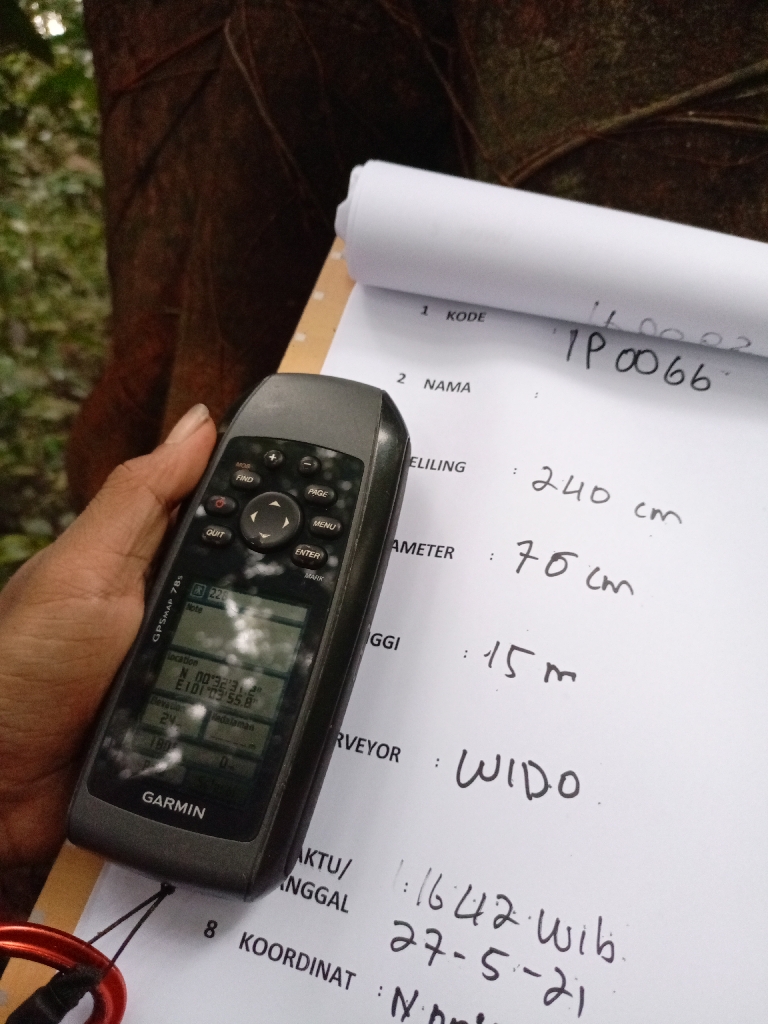 1 KODE
1P0066
2 NAMA :
ELILING : 240 cm
AMETER : 76 cm
GGI : 15 m
RVEYOR : WIDO
AKTU/
ANGGAL : 1642 Wib
27-5-21
8 KOORDINAT : N
MOB
FIND
PAGE
QUIT
MENU
ENTER
MARK
GPSMAP 78s
Note
Location
N 00°32'31.2"
E101°03'55.8"
Elevation
Kedalaman
24
GARMIN